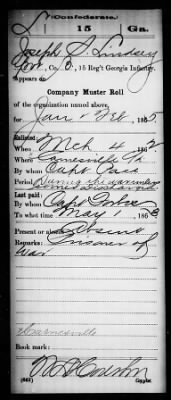 (Confederate.)
L 15 Ga.
Joseph S. Lindsey
Corp., Co. D, 15 Reg't Georgia Infantry.
Appears on
Company Muster Roll
of the organization named above,
for Jan & Feb, 1865.
Enlisted:
When Mch 4, 1862
Where Carnesville Ga
By whom Capt
Period During the war unless
Last paid:
By whom Capt
To what time May 1, 186
Present or absent Absent
Remarks: Prisoner of
War
Carnesville
Book mark:
(642) Copyist.